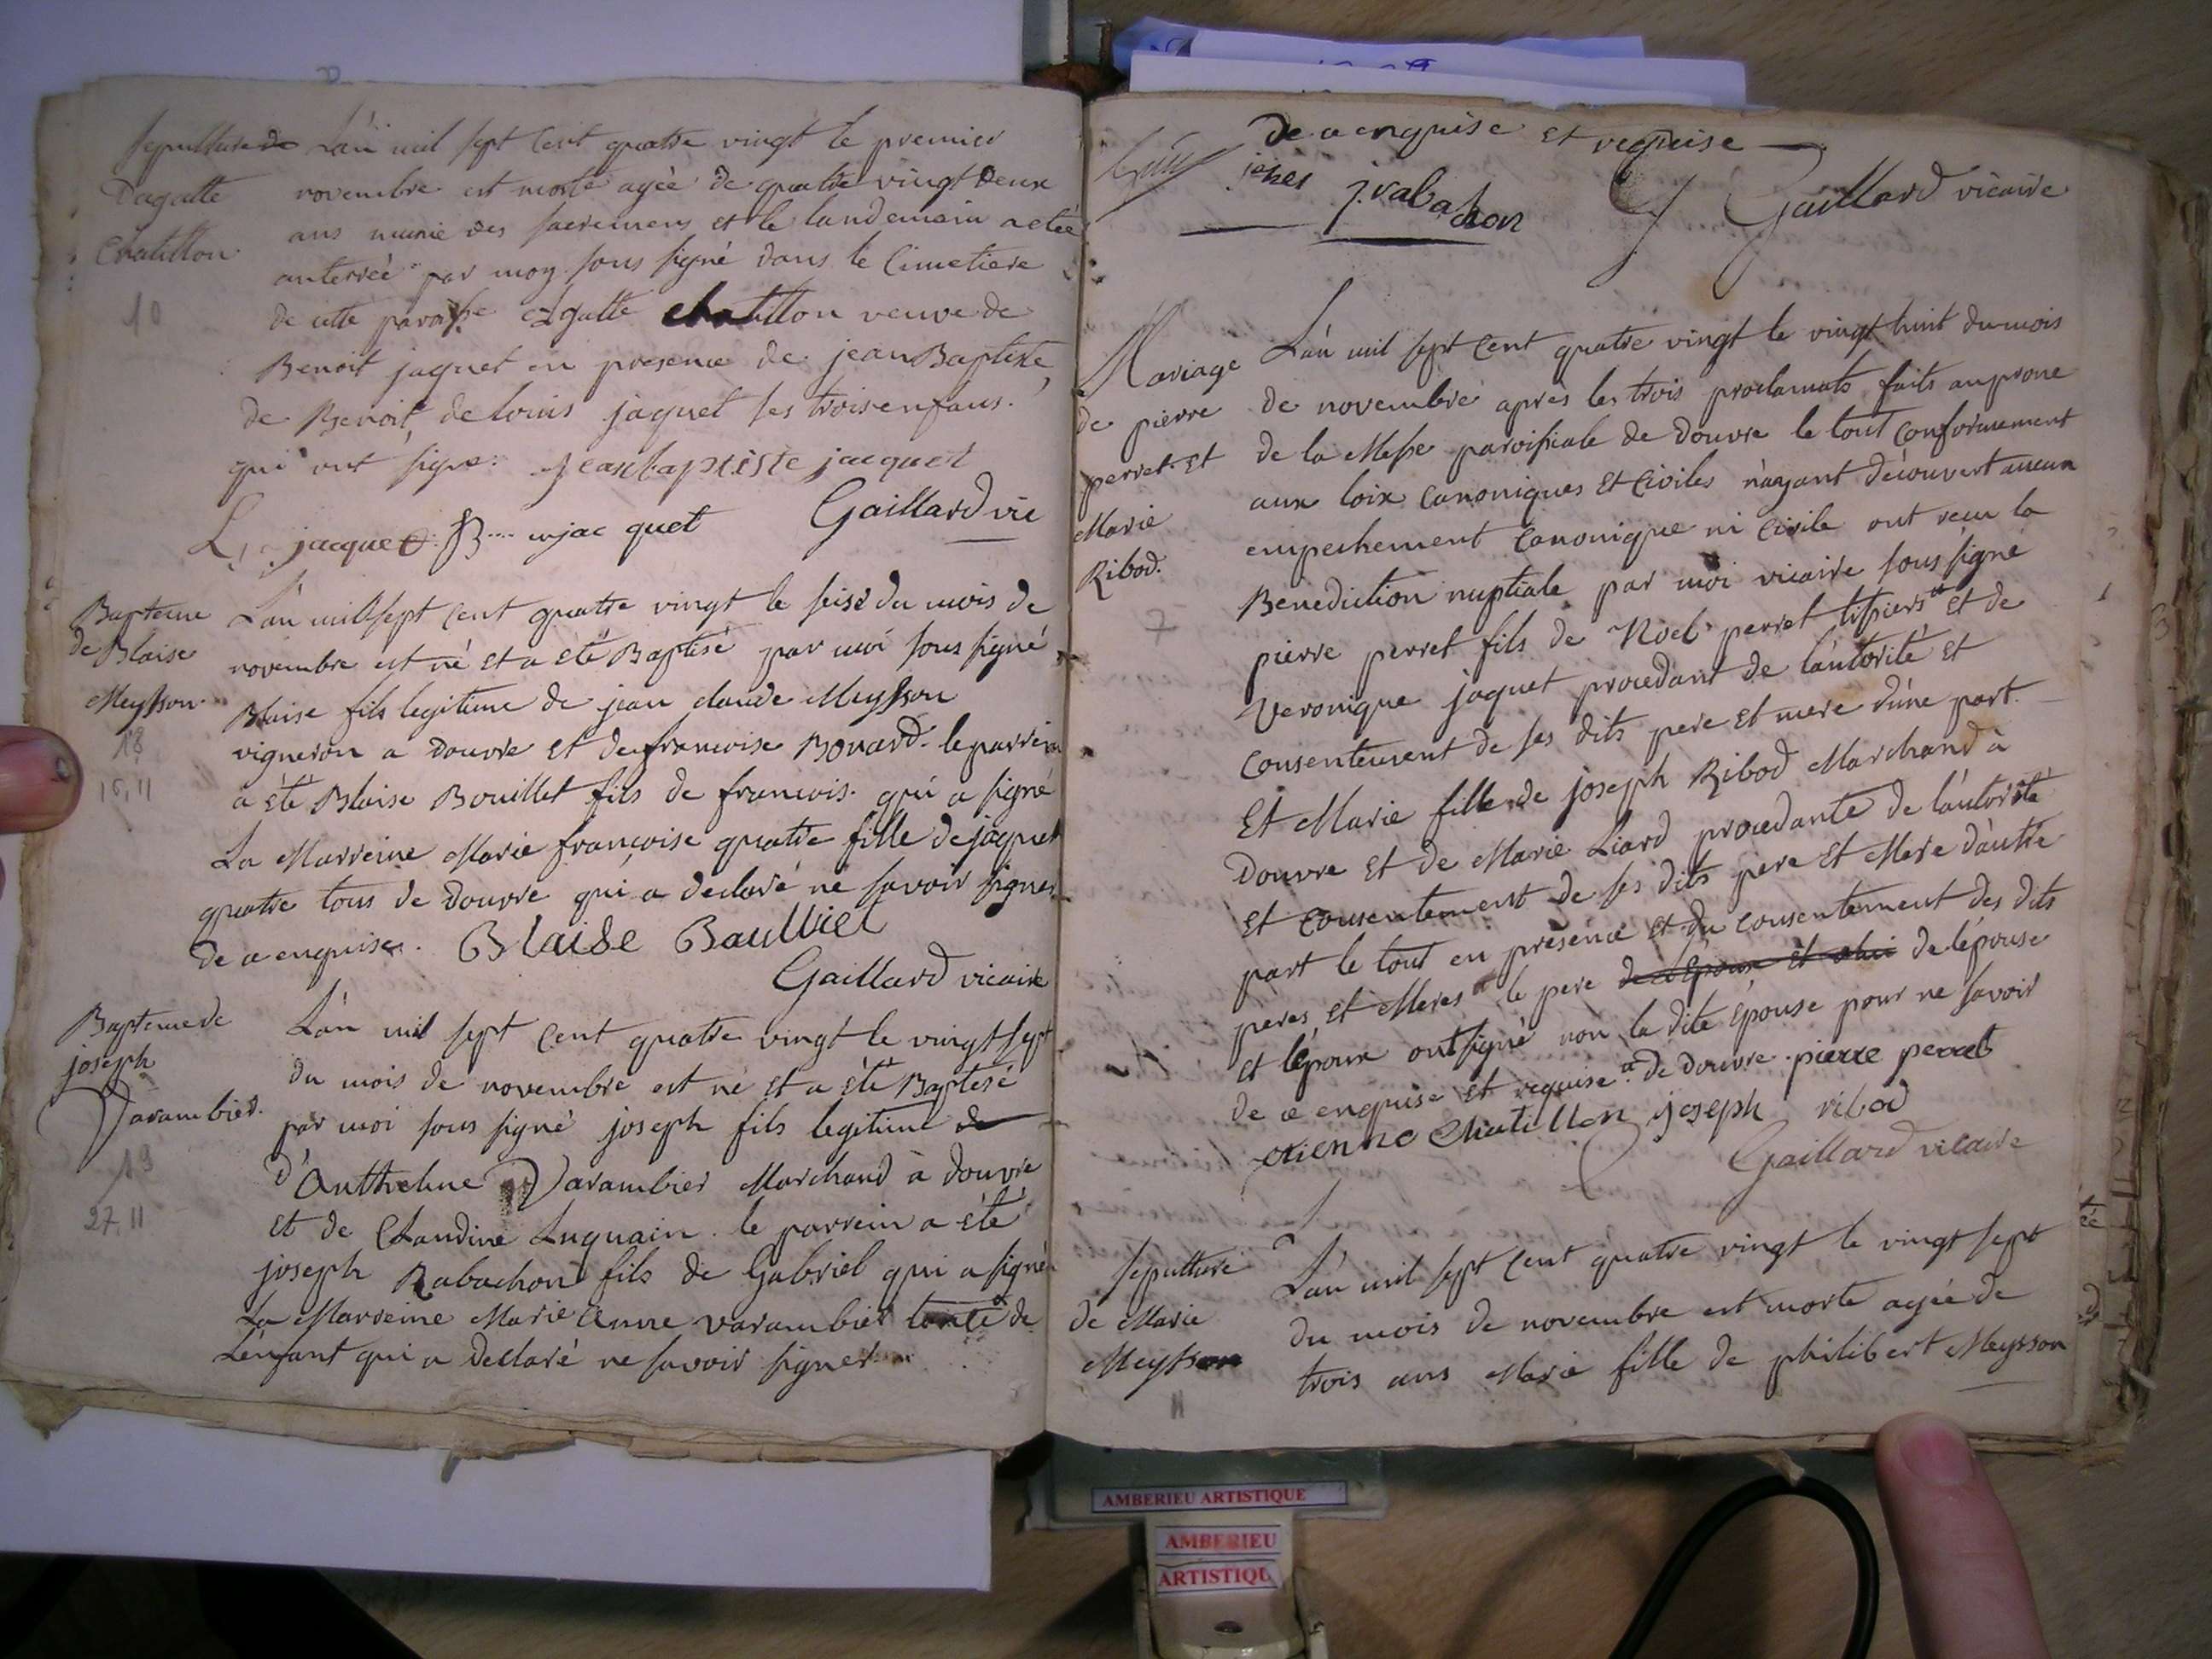 Sepulture de
D'agatte
Chatillon
10
L'an mil sept cent quatre vingt le premier
novembre est morte agée de quatre vingt deux
ans munie des sacremens et le landemain a eté
anterrée par moy sous signé dans le Cimetiere
de cette paroisse Agatte chatillon veuve de
Benoit jaquet en presence de jean Baptiste,
de Benoit, de louis jaquet ses trois enfans.
qui ont signe. jeanbaptiste jacquet
L jacquet B jac quet Gaillard vic
Bapteme
de Blaise
Meysson
18
16, 11
L'an mil sept cent quatre vingt le seise du mois de
novembre est né et a eté Baptisé par moi sous signé
Blaise fils legitime de jean claude Meysson
vigneron a douvre et de francoise Bonard. le parrein
a eté Blaise Bouillet fils de francois. qui a signé
La Marreine Marie françoise quatre fille de jaques
quatre tous de Douvre qui a declaré ne savoir signer
de ce enquise. Blaise Baulliet
Gaillard vicaire
Bapteme de
joseph
Varambier.
19
27, 11
L'an mil sept cent quatre vingt le vingt sept
du mois de novembre est né et a eté Baptisé
par moi sous signé joseph fils legitime de
d'Anthelme Varambier Marchand à douvre
et de Claudine Luquain. le parrein a été
joseph Rabachon fils de Gabriel qui a signé
La Marreine Marie Anne varambier tante de
L'enfant qui a declaré ne savoir signer
de ce enquise et requise
j. rabachon Gaillard vicaire
Mariage
de pierre
perret et
Marie
Ribod.
7
L'an mil sept cent quatre vingt le vingt huit du mois
de novembre après les trois proclamats faits au prone
de la Messe paroissiale de Douvre le tout conformement
aux loix Canoniques et Civiles n'ayant découvert aucun
empechement Canonique ni Civile ont recu la
Benediction nuptiale par moi vicaire sous signé
pierre perret fils de Noel perret tissier et de
Veronique jaquet procedant de l'autorité et
consentement de ses dits pere et mere d'une part.
Et Marie fille de joseph Ribod Marchand à
Douvre et de Marie Liard procedante de l'autorité
et consentement de ses dits pere et Mere d'autre
part le tout en presence et du consentement des dits
peres et Meres le pere de l'épouse
et l'époux ont signé non la dite Epouse pour ne savoir
de ce enquise et requise de douvre. pierre perret
etienne Chatillon joseph ribod
Gaillard vicaire
Sepulture
de Marie
Meysson
11
L'an mil sept cent quatre vingt le vingt sept
du mois de novembre est morte agée de
trois ans Marie fille de philibert Meysson
AMBERIEU ARTISTIQUE
AMBERIEU
ARTISTIQU